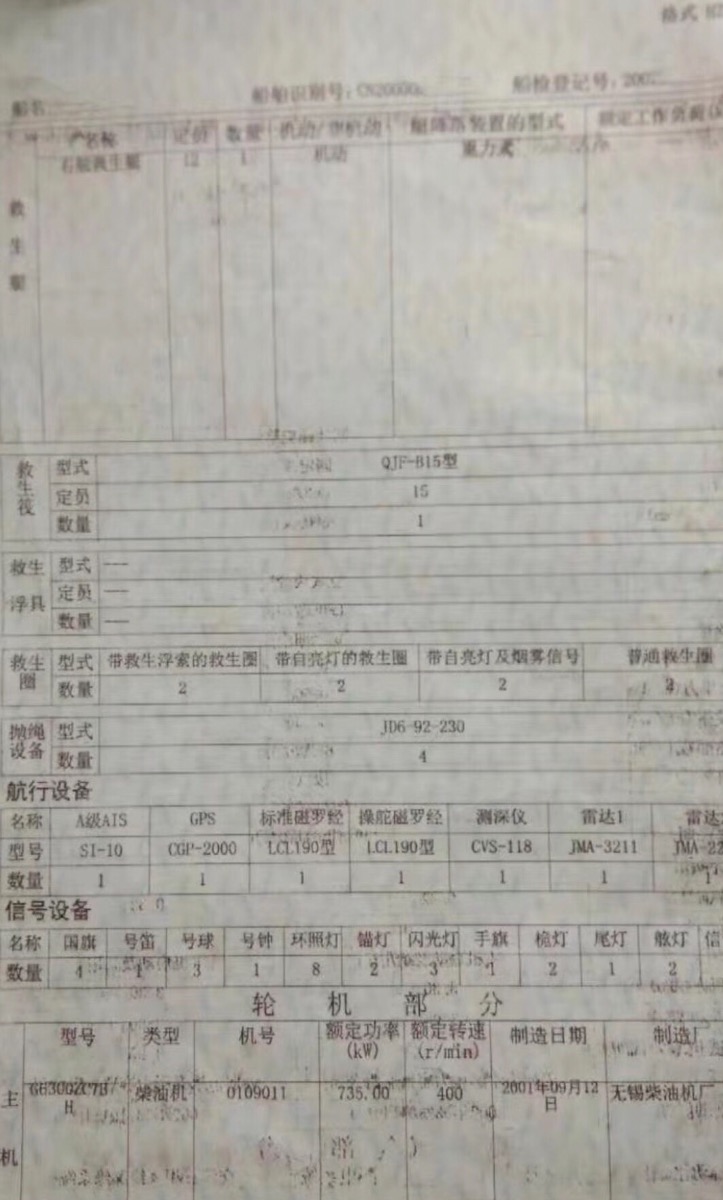 格式
船名 船舶识别号: 船检登记号:
名称 定员 数量 机动/非机动 艇降落装置的型式 额定工作负荷
右舷救生艇 12 1 机动 重力式
救生艇
救生筏 型式 QJF-B15型
定员 15
数量 1
救生浮具 型式 ---
定员 ---
数量 ---
救生圈 型式 带救生浮索的救生圈 带自亮灯的救生圈 带自亮灯及烟雾信号 普通救生圈
数量 2 2 2
抛绳设备 型式 JD6-92-230
数量 4
航行设备
名称 A级AIS GPS 标准磁罗经 操舵磁罗经 测深仪 雷达1 雷达
型号 SI-10 CGP-2000 LCL190型 LCL190型 CVS-118 JMA-3211 JMA-22
数量 1 1 1 1 1 1 1
信号设备
名称 国旗 号笛 号球 号钟 环照灯 锚灯 闪光灯 手旗 桅灯 尾灯 舷灯 信
数量 4 1 3 1 8 2 3 1 2 1 2
轮机部分
型号 类型 机号 额定功率(kW) 额定转速(r/min) 制造日期 制造厂
主机 柴油机 0109011 735.00 400 2001年09月12日 无锡柴油机厂